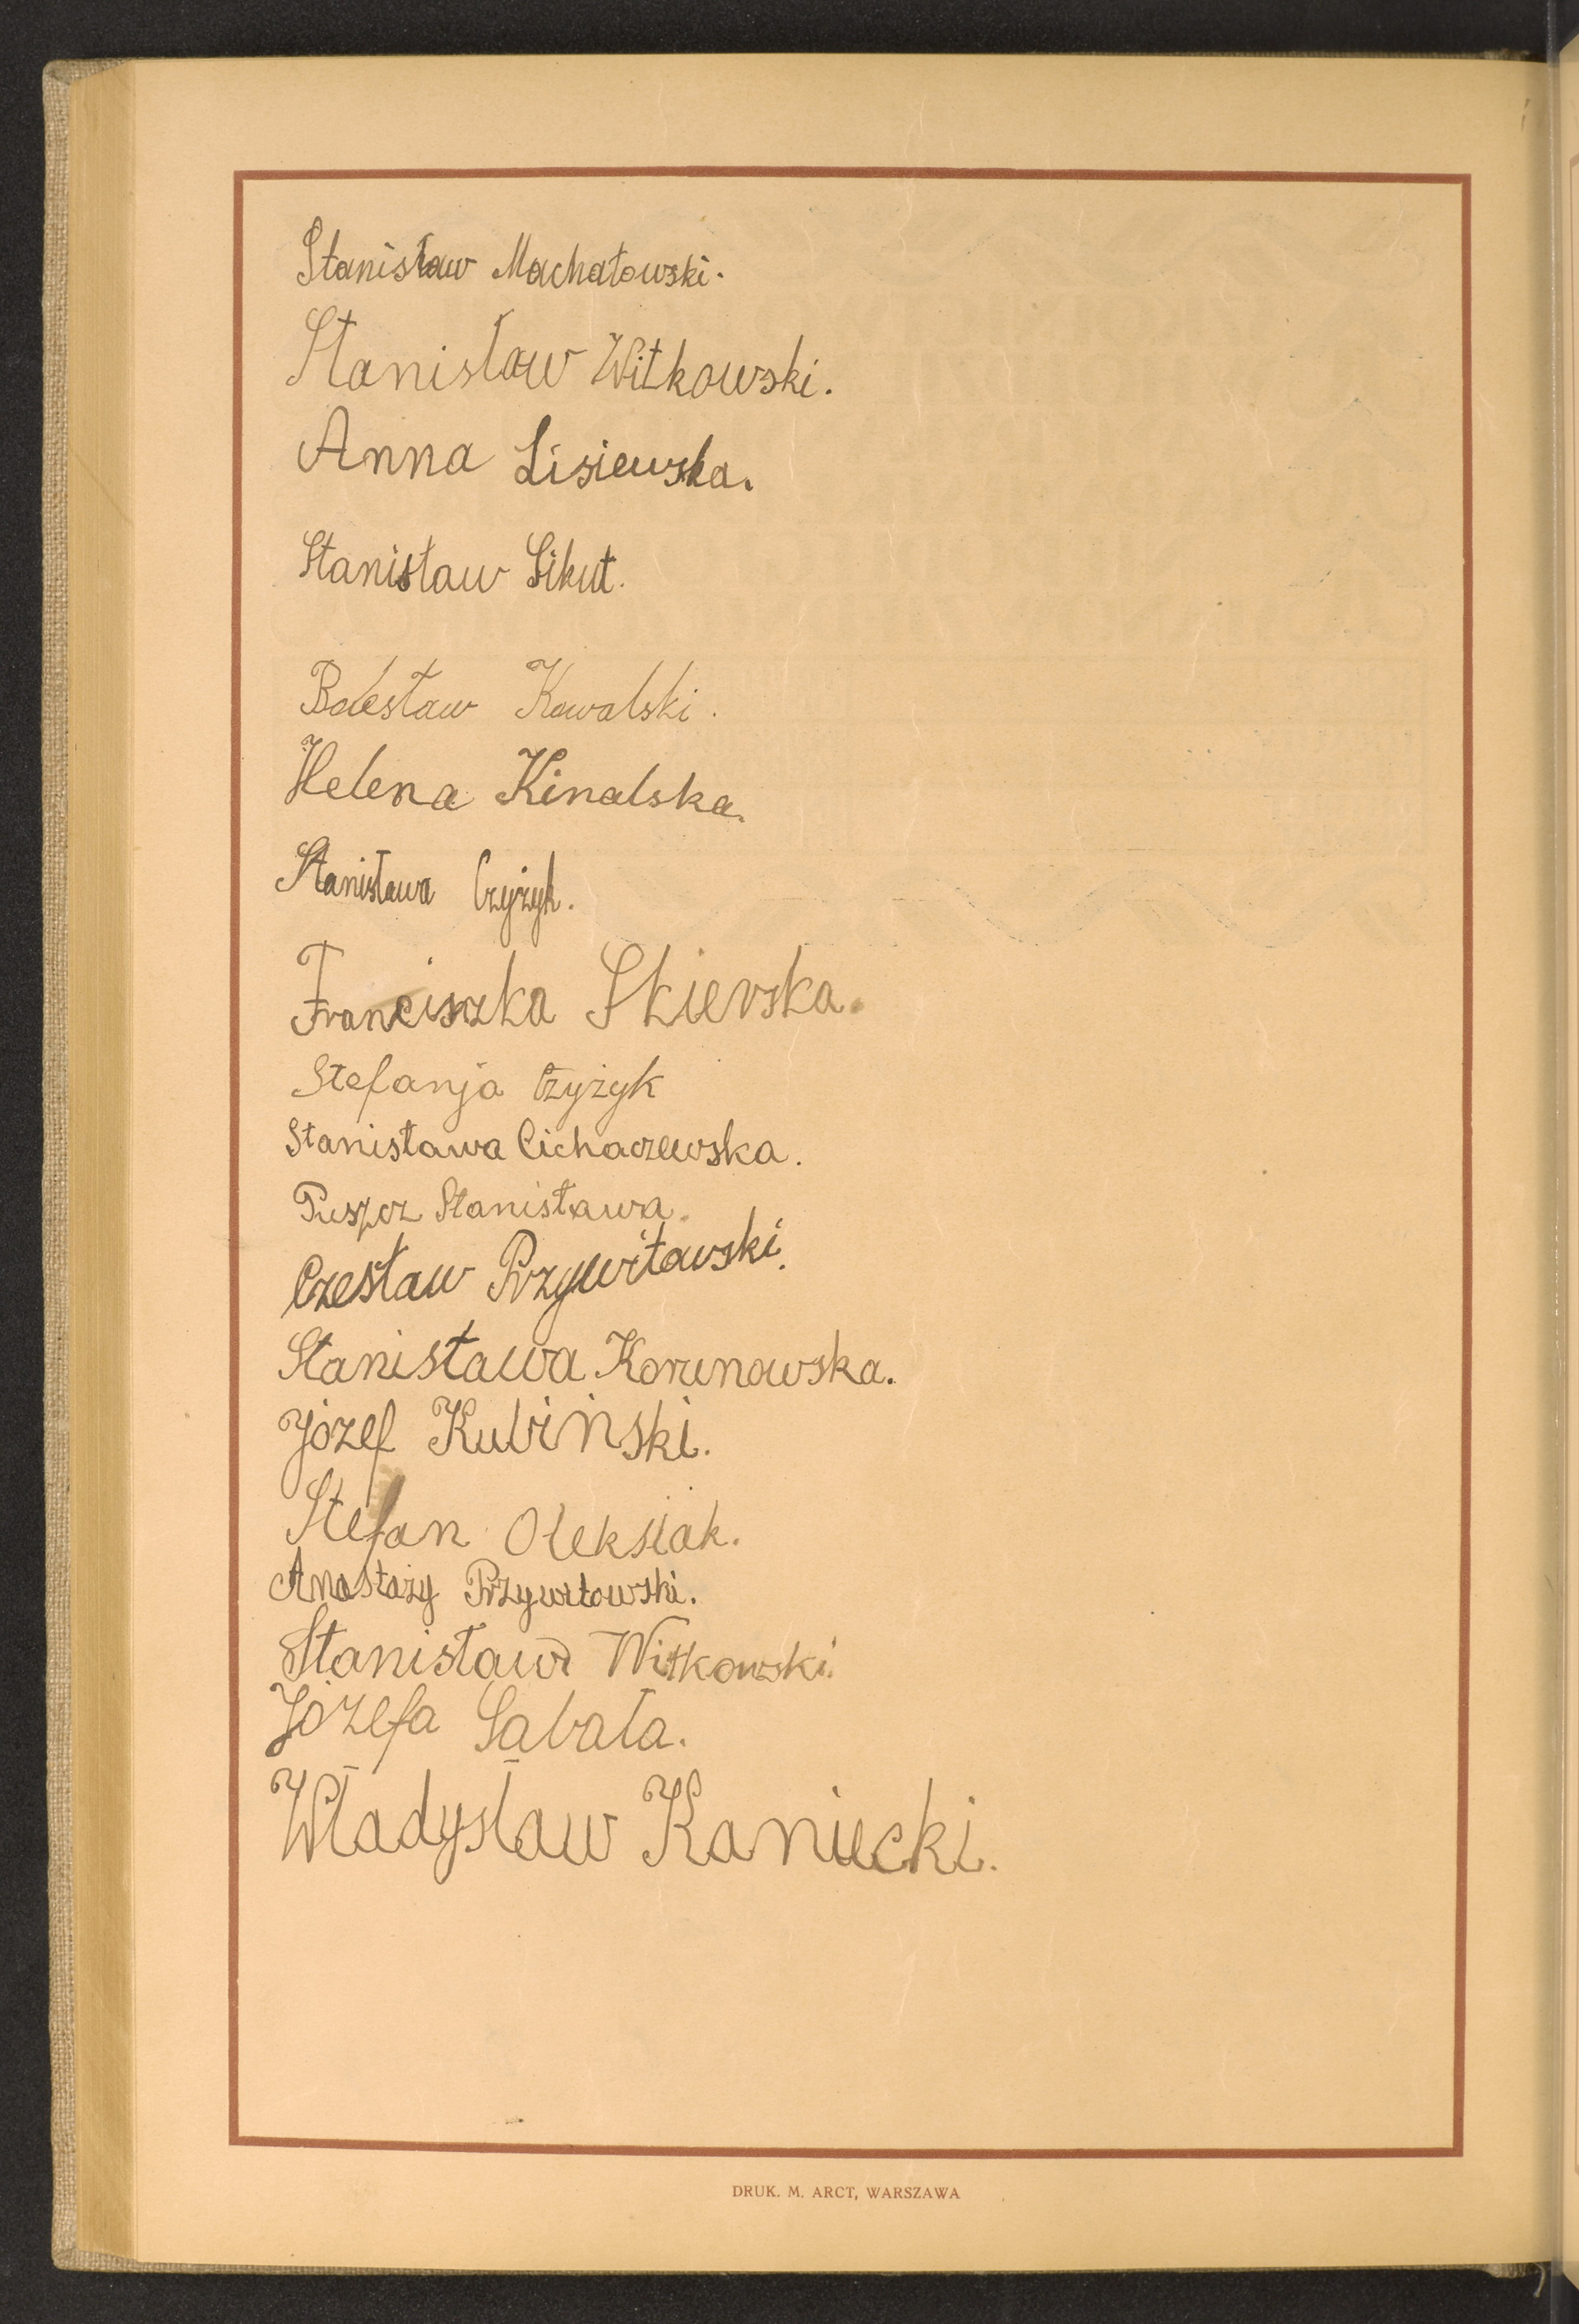 Stanisław Machałowski.
Stanisław Witkowski.
Anna Lisiewska.
Stanisław Sikut.
Bolesław Kowalski.
Helena Kinalska.
Stanisława Czyżyk.
Franciszka Skierska.
Stefanja Czyżyk
Stanisława Cichaczewska.
Stanisława.
Czesław Przywitowski.
Stanisława Korunowska.
Józef Kubiński.
Stefan Oleksiak.
Anastazy Przywitowski.
Stanisław Witkowski
Józefa Sabała.
Władysław Kaniecki.
DRUK. M. ARCT, WARSZAWA